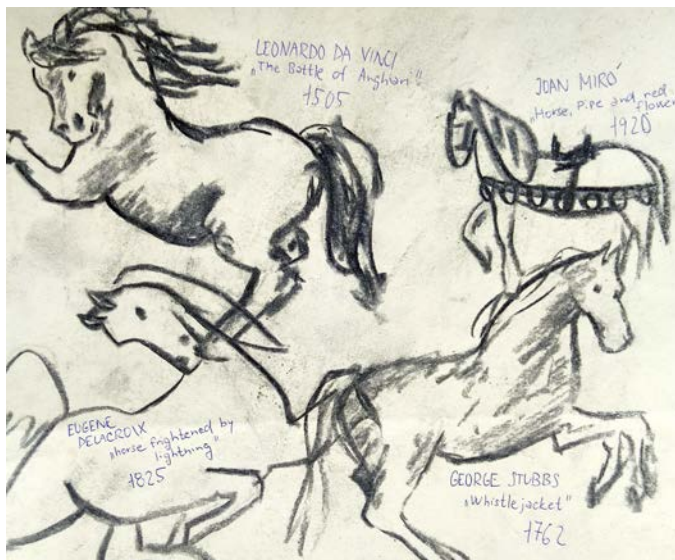 LEONARDO DA VINCI
„The Battle of Anghiari"
1505
JOAN MIRÓ
„Horse, Pipe and red
flower
1920
EUGENE
DELACROIX
„horse frightened by
lightning"
1825
GEORGE STUBBS
„Whistlejacket"
1762